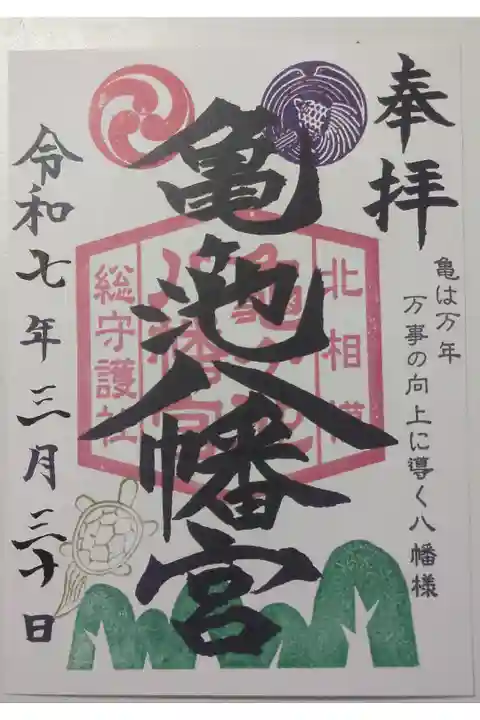 奉拝
亀は万年
万事の向上に導く八幡様
北相模
亀池八幡宮
総守護社
令和七年三月三十日